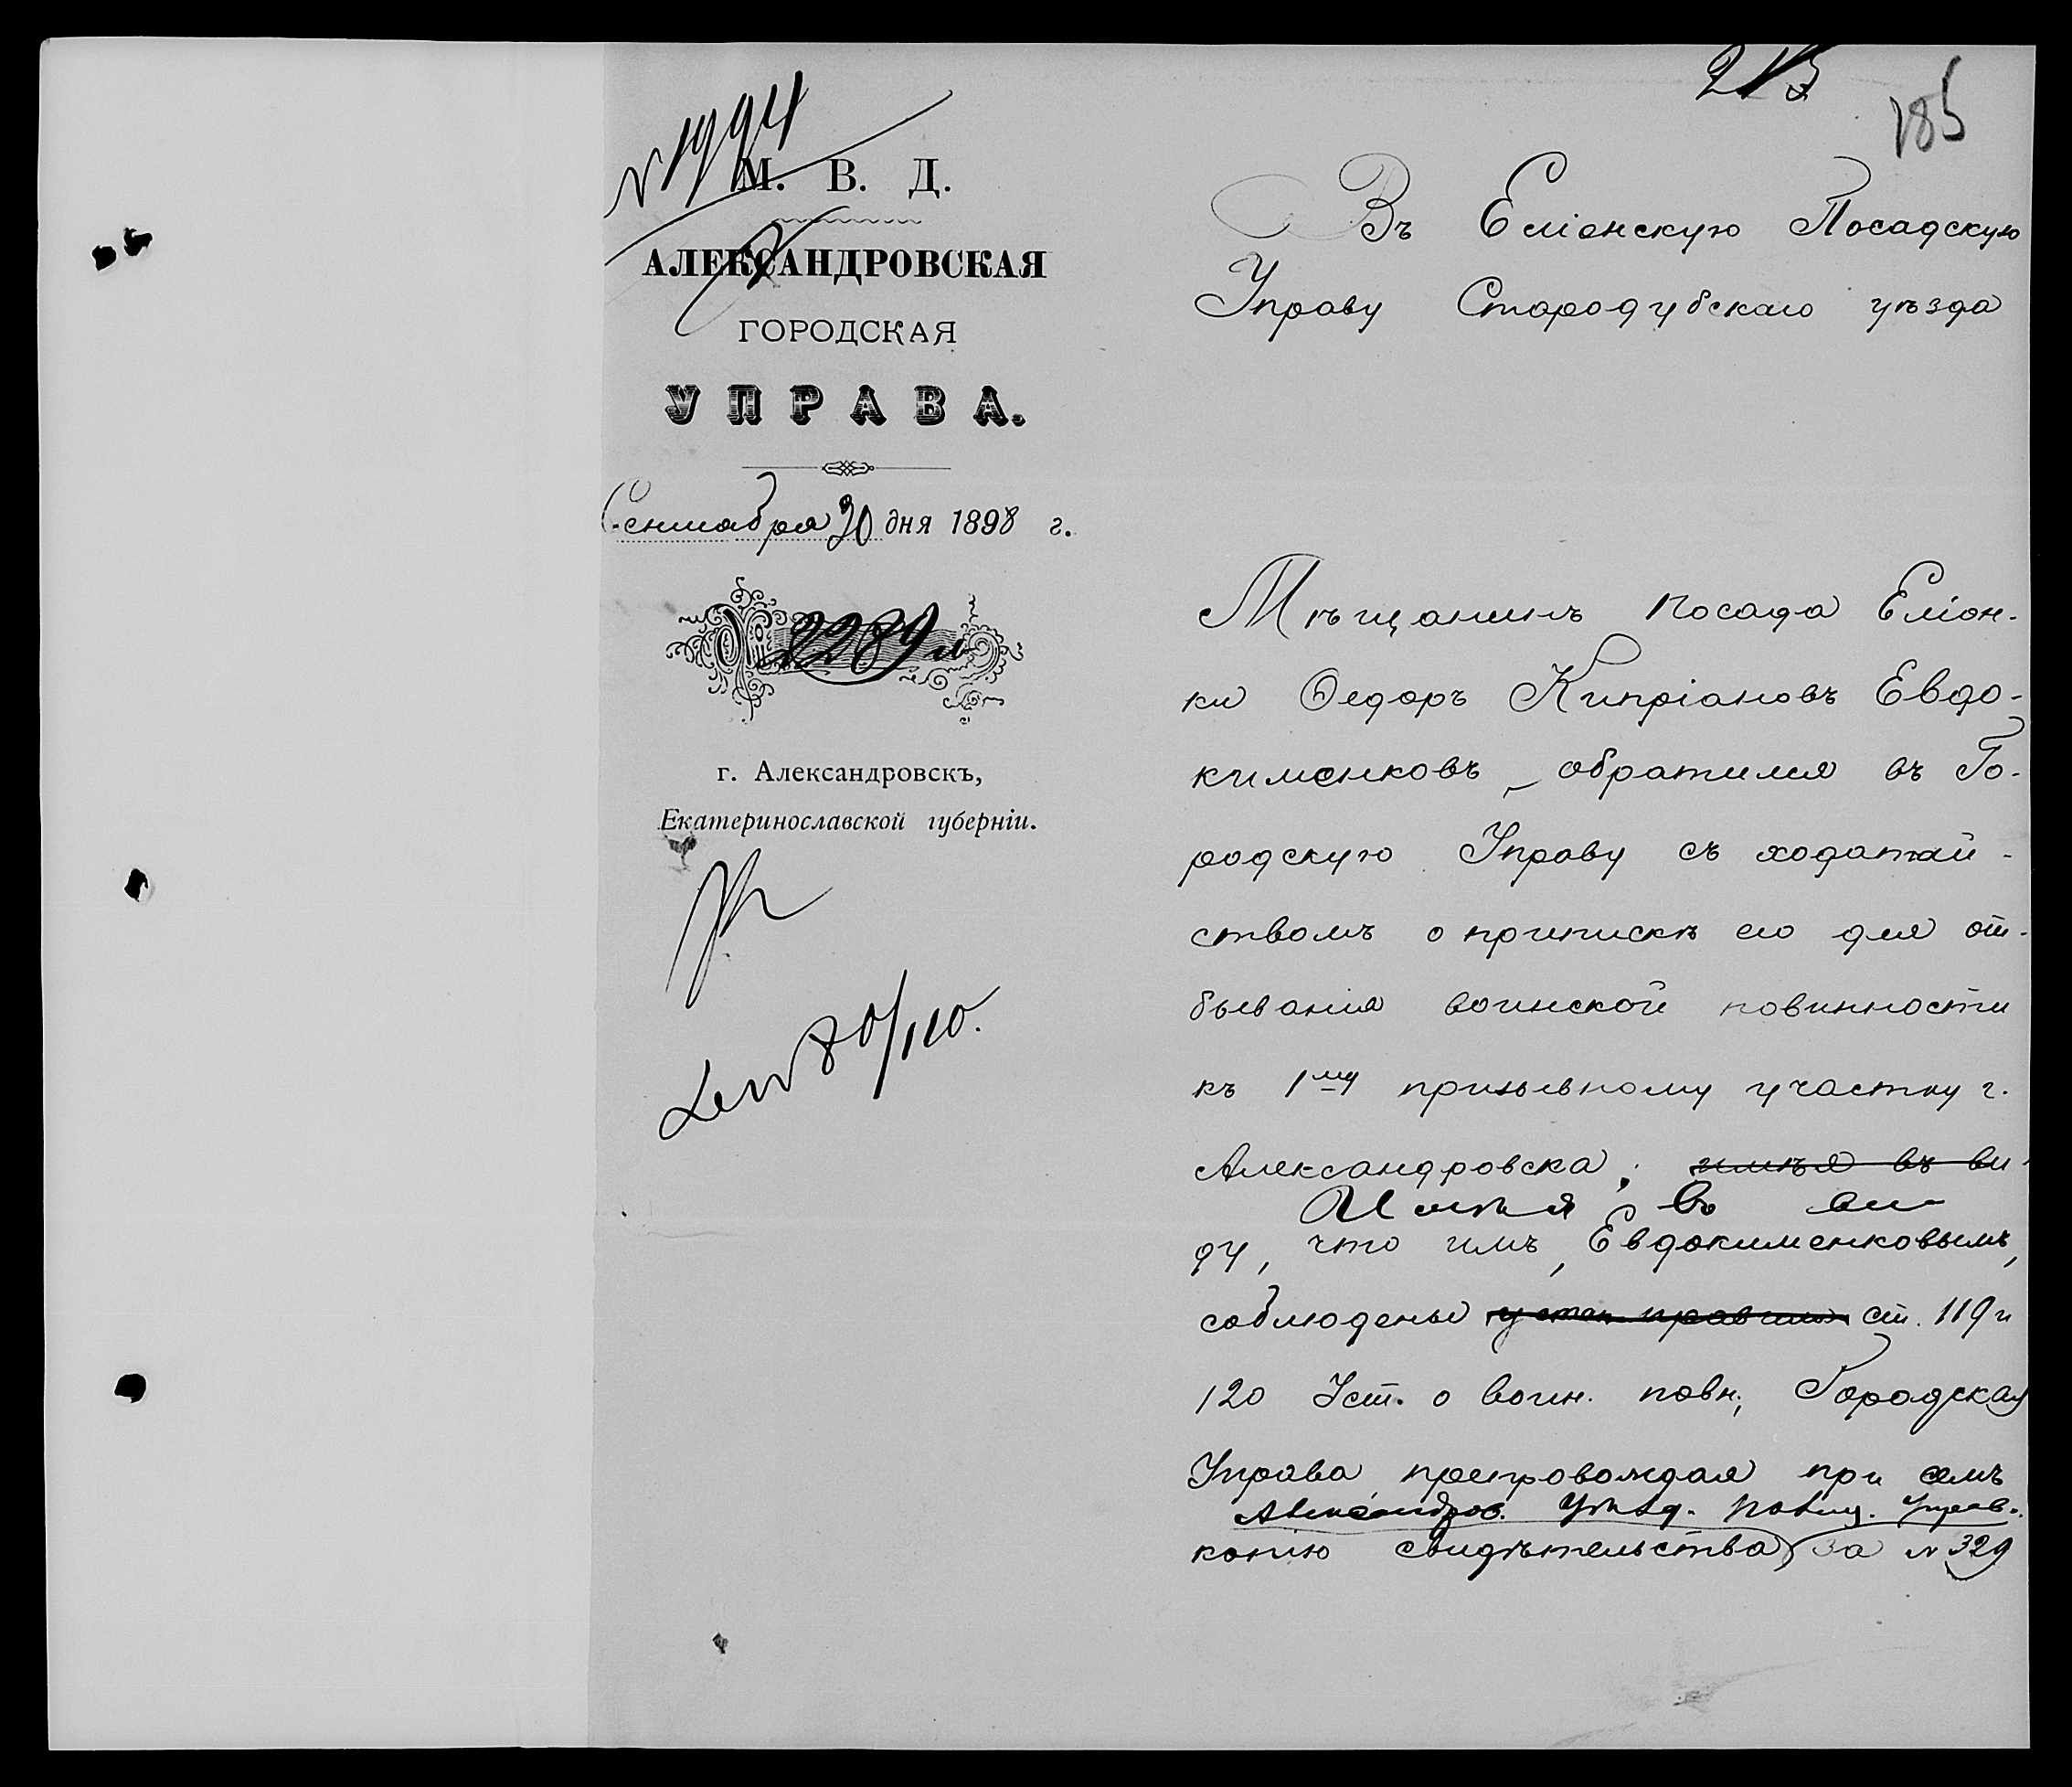 215
185
№ 1994
М. В. Д.
АЛЕКСАНДРОВСКАЯ
ГОРОДСКАЯ
УПРАВА.
Сентября 30 дня 1898 г.
№ 2289
г. Александровскъ,
Екатеринославской губерніи.
Въ Еліонскую Посадскую
Управу Стародубскаго уѣзда
Мѣщанинъ посада Еліон-
ки Ѳедоръ Кипріановъ Евдо-
кименковъ, обратился въ Го-
родскую Управу съ ходатай-
ствомъ о припискѣ его для от-
быванія воинской повинности
къ 1му призывному участку г.
Александровска; имѣя въ ви-
Имѣя въ ви
ду, что имъ, Евдокименковымъ,
соблюдены устан. правила ст. 119 и
120 Уст. о воин. повн., Городская
Управа препровождая при семъ
Александров. Уѣзд. Полиц. Управ.
копію свидѣтельства за № 329